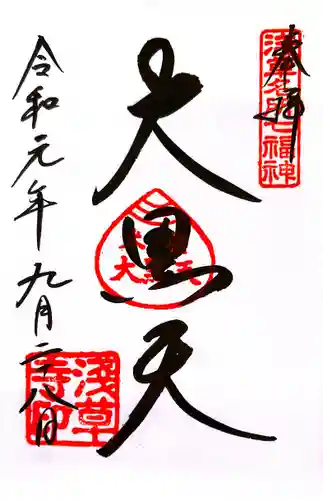 奉拝
浅草名所七福神
大黒天
大黒天
令和元年九月二十八日
浅草寺印